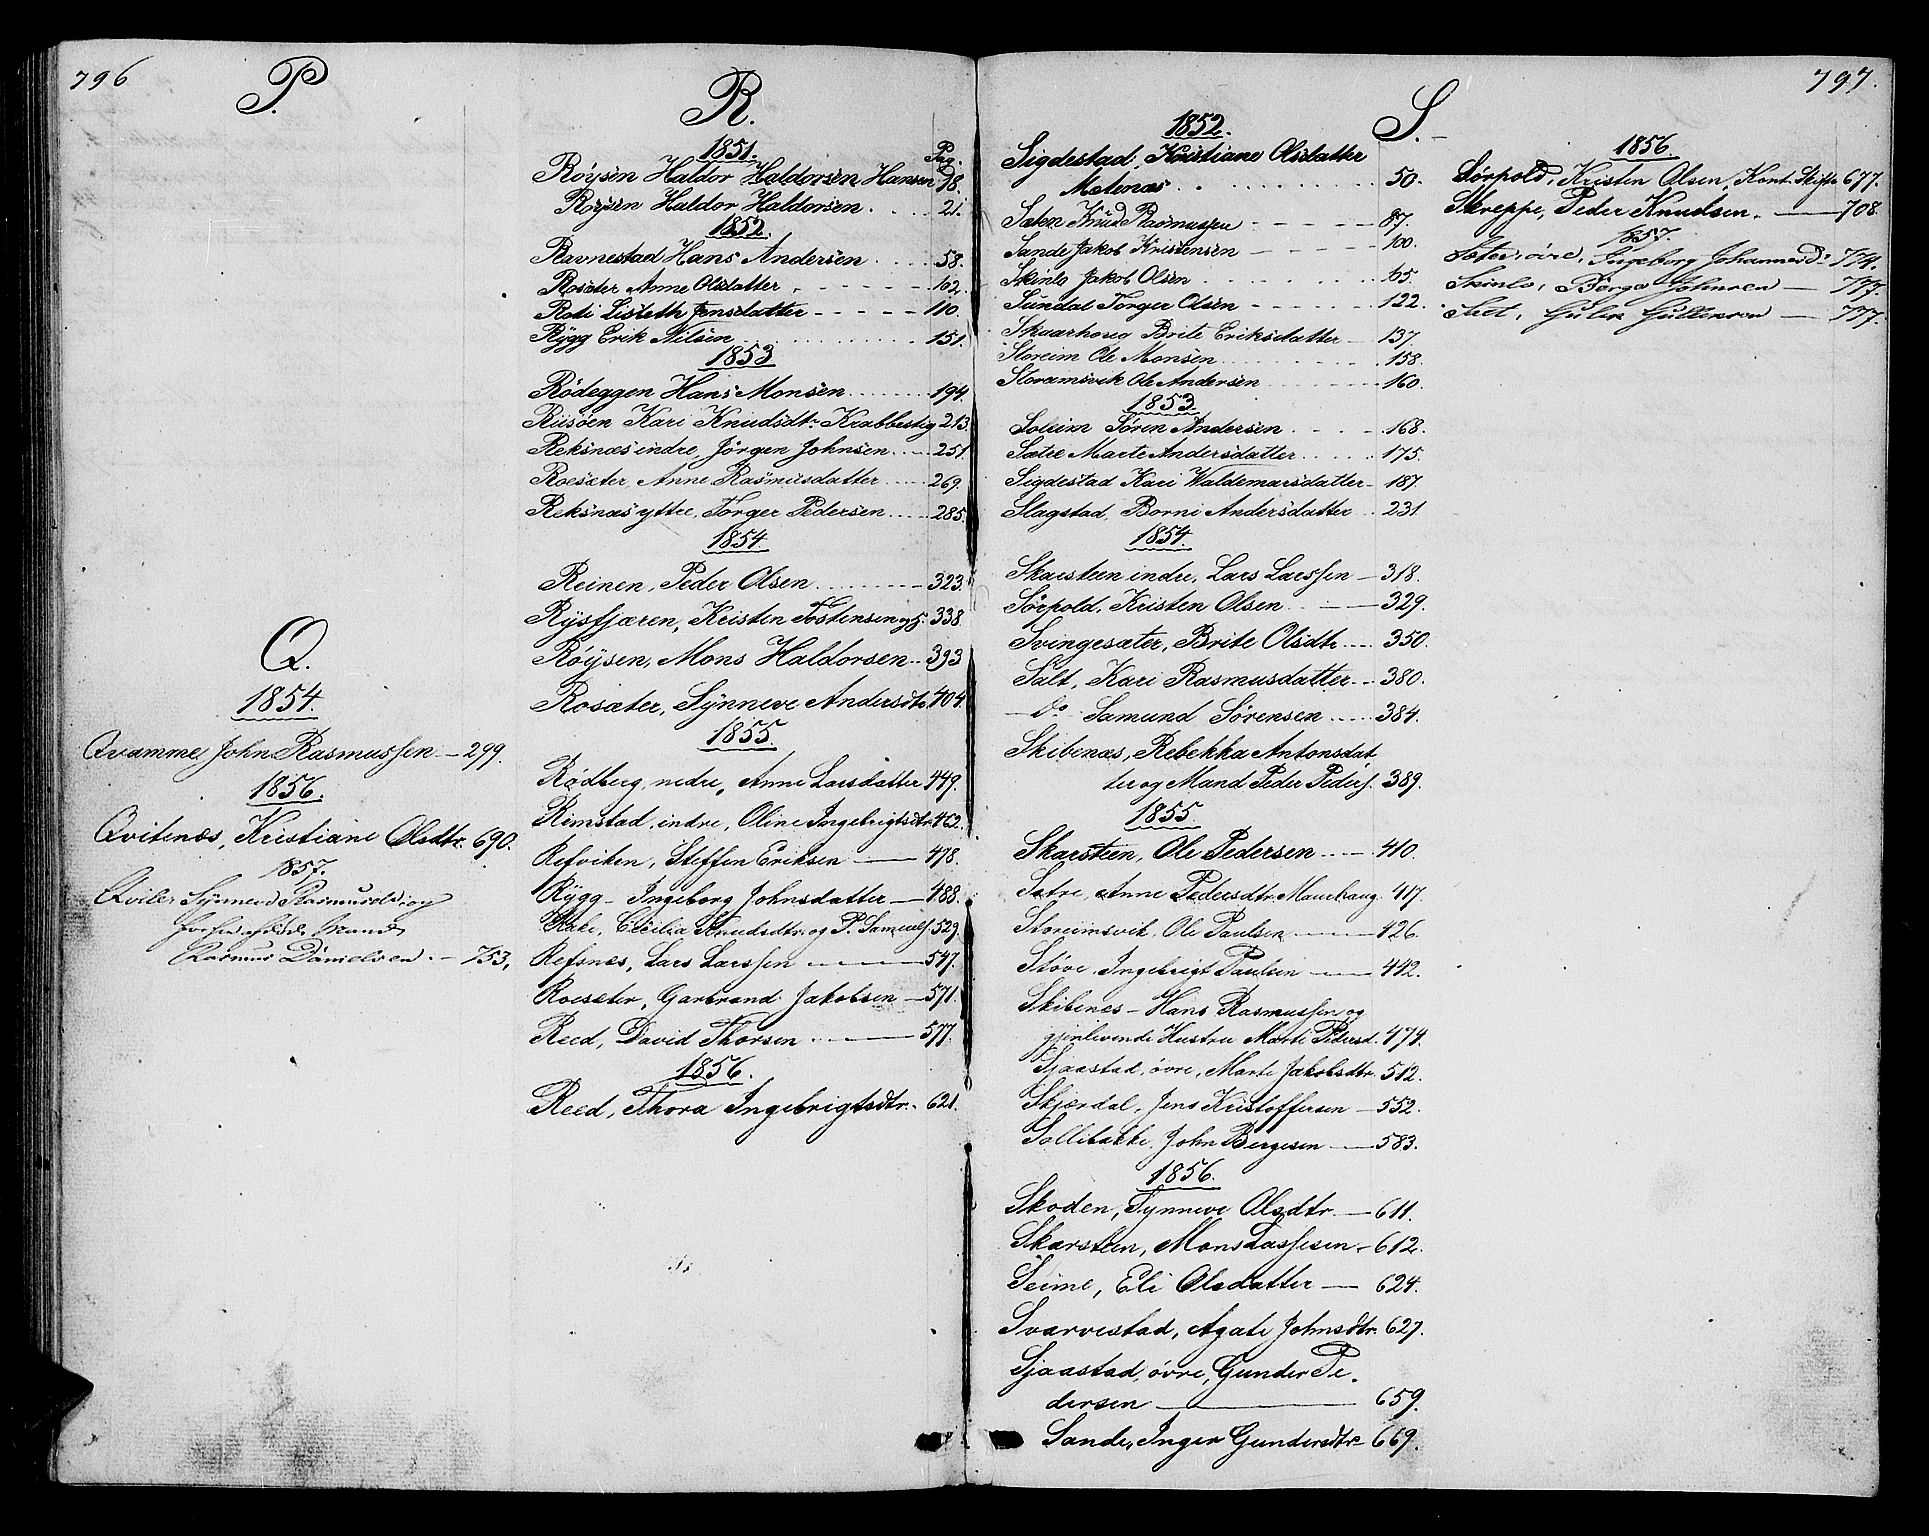 796
P.
Q.
1854.
Qvamme, John Rasmussen — 299.
1856.
Qvitenæs, Kristiane Olsdtr. 690.
1857.
Qvile, Synneve Rasmusd. og
Mand
Rasmus Danielsen — 753.
R.
1851. Pag.
Røysen Haldor Haldorsen Hansen 98.
Røysen Haldor Haldorsen . . . . 21.
1852.
Ravnestad Hans Andersen . . . . 58.
Rosæter Anne Olsdatter . - - - - 102.
Roti Lisbeth Jensdatter - - - - - 110.
Rygg Erik Nilsen . . . . . . . . 151.
1853
Rødeggen Hans Monsen . . . . . . 194.
Riisøen Kari Knudsdtr. Krabbestig 213.
Reksnæs indre, Jørgen Johnsen . . . 251.
Roesæter Anne Rasmusdatter . . . . 269.
Reksnæs yttre, Torger Pedersen . . . . 285.
1854.
Reinen, Peder Olsen . . . . . . . 323.
Rysfjæren, Kristen Tostensen og H. 338.
Røysen, Mons Haldorsen . . 393
Rosæter, Synneve Andersdtr. 404.
1855.
Rødberg nedre, Anne Larsdatter 449.
Rimstad indre, Oline Ingebrigtsdtr. 462.
Refviken, Steffen Eriksen — 478.
Rygg - Ingeborg Johnsdatter — 488.
Rake, Cecilia Knudsdtr. og P. Samuels. 529.
Refsnes, Lars Larssen — 547.
Roesæter, Garbrand Jakobsen — 571.
Reed, David Thorsen — 577.
1856.
Reed, Thora Ingebrigtsdtr. 621.
797.
S.
1852.
Sigdestad, Kristiane Olsdatter
Matenæs . . . . . . . 50.
Saten Knud Rasmussen - - - - - 87.
Sande Jakob Kristensen - - - - 100.
Skinlo Jakob Olsen . . . . . . 65.
Sundal Torger Olsen - - - - 122.
Skaarhoug Brite Eriksdatter — 137.
Storeim Ole Monsen . . . . . . 158.
Storeimsvik Ole Andersen . . . . . 160.
1853.
Soleim Søren Andersen . . . . . 168.
Sætre Marte Andersdatter . . . . . 175.
Sigdestad Kari Waldemarsdatter - 187.
Slagstad, Borni Andersdatter . . 231.
1854.
Skarsteen indre, Lars Larssen — 318.
Sørpold, Kristen Olsen . . — 329.
Svingesæter, Brite Olsdtr. . . . 350.
Salt, Kari Rasmusdatter . . . 380.
— do Samund Sørensen . . . . 384.
Skibenæs, Rebekka Antonsdat
ter og Mand Peder Peders. 389.
1855.
Skarsteen, Ole Pedersen . . . — 410.
Sætre, Anne Pedersdtr. Maurhaug. 417.
Storeimsvik, Ole Paulsen — 426.
Støve, Ingebrigt Paulsen — 442.
Skibenæs - Hans Rasmussen og
gjenlevende Hustru Marte Pedersd. 474.
Sjaastad, øvre, Marte Jakobsdtr. 512.
Skjerdal, Jens Kristoffersen — 552.
Sollibakke, John Børgesen — 583.
1856.
Skoden, Synneve Olsdtr. — 611.
Skarsteen, Mons Lassesen - 612.
Seime, Eli Olsdatter — 624.
Svarvestad, Agate Johnsdtr. 627.
Sjaastad, øvre, Gunder Pe
dersen — 659.
Sande, Inger Gundersdtr. 669.
1856.
Sørpold, Kristen Olsen, Kont. Skifte 677.
Skreppe, Peder Knudsen. — 708.
1857.
Ingeborg Johannesd. 774.
Skinlo, Børge Johnsen — 777.
Gullik Gulleksen — 777.